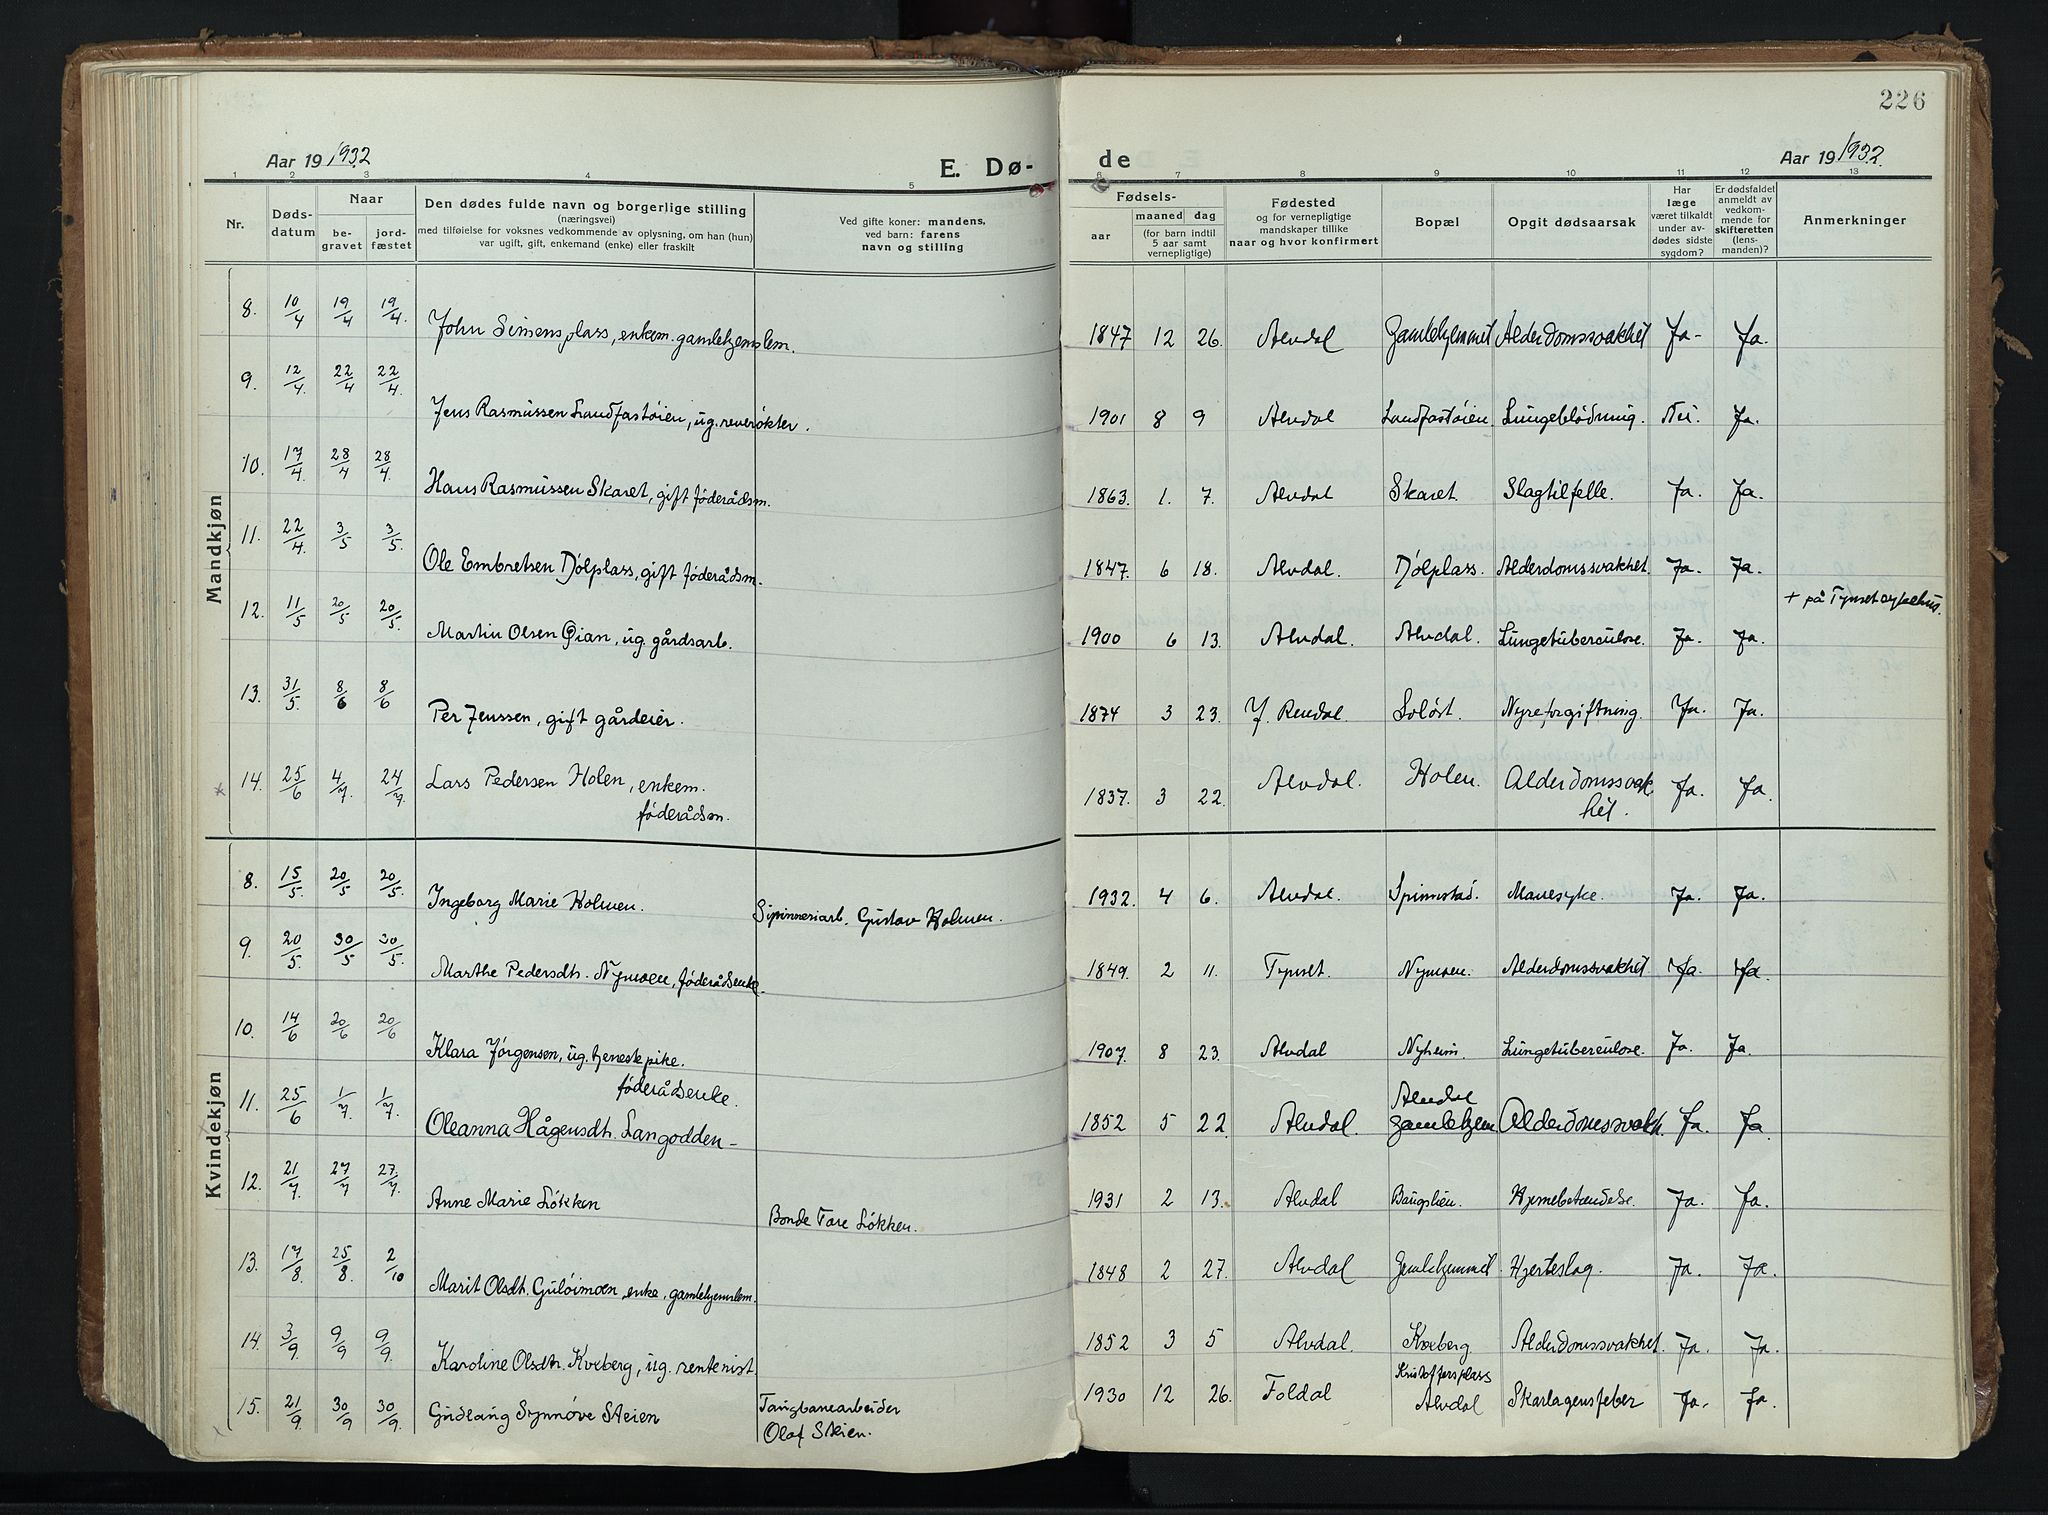 226
Aar 19 1932
E. Dø-
de
Aar 19 1932.
1 2 3 4 5 6 7 8 9 10 11 12 13
Nr.
Døds-
datum
Naar
be-
gravet
jord-
fæstet
Den dødes fulde navn og borgerlige stilling
(næringsvei)
med tilføielse for voksnes vedkommende av oplysning, om han (hun)
var ugift, gift, enkemand (enke) eller fraskilt
Ved gifte koner: mandens,
ved barn: farens
navn og stilling
Fødsels-
aar
maaned
dag
(for barn indtil
5 aar samt
vernepligtige)
Fødested
og for vernepligtige
mandskaper tillike
naar og hvor konfirmert
Bopæl
Opgit dødsaarsak
Har
læge
været tilkaldt
under av-
dødes sidste
sygdom?
Er dødsfaldet
anmeldt av
vedkom-
mende for
skifteretten
(lens-
manden)?
Anmerkninger
Mandkjøn
8. 10/4 19/4 19/4. John Simensplass, enkem. gamlehjemslem. 1847 12 26. Alvdal Gamlehjemmet Alderdomssvakhet Ja- Ja.
9. 12/4. 22/4 22/4. Jens Rasmussen Landfastøien, ug. reverøkter. 1901 8 9 Alvdal Landfastøien. Lungeblødning. Nei. Ja.
10. 17/4. 28/4 28/4. Hans Rasmussen Skaret, gift føderådsm. 1863. 1. 7. Alvdal Skaret. Slagtilfelle. Ja. Ja.
11. 22/4. 3/5 3/5. Ole Embretsen Dølplass, gift føderådsm. 1847. 6 18. Alvdal. Dølplass. Alderdomssvakhet. Ja. Ja.
+ på Tynset sykehus.
12. 11/5 20/5 20/5. Martin Olsen Øian, ug. gårdsarb. 1900 6 13. Alvdal. Alvdal. Lungetuberculose. Ja. Ja.
13. 31/5. 8/6 8/6 Per Jenssen, gift gårdeier. 1874 3 23. Y. Rendal. Soløst. Nyreforgiftning. Ja. Ja.
14. 25/6 4/7. 24/7. Lars Pedersen Holen, enkem. 1837. 3 22. Alvdal. Holen. Alderdomssvak
føderådsm. het. Ja. Ja.
Kvindekjøn
8. 15/5. 20/5 20/5. Ingeborg Marie Holmen. Spinneriarb. Gustav Holmen. 1932. 4 6. Alvdal. Spinnstad. Mavesyke. Ja. Ja.
9. 20/5. 30/5 30/5. Marthe Pedersdt. Nymoen, føderådsenke. 1849. 2 11. Tynset. Nymoen. Alderdomssvakhet Ja. Ja.
10. 14/6 20/6 20/6 Klara Jørgensen, ug. tjenestepike. 1907. 8 23. Alvdal Nyheim. Lungetuberculose. Ja. Ja.
føderådsenke. Alvdal
11. 25/6 1/7. 1/7. Oleanna Hågensdt. Langodden- 1852 5 22. Alvdal. gamlehjem Alderdomssvakh. Ja. Ja.
12. 21/7. 27/7 27/7. Anne Marie Løkken Bonde Tore Løkken. 1931 2 13. Alvdal Baugslien. Hjernebetendelse. Ja. Ja.
13. 17/8. 25/8. 2/10 Marit Olsdt. Guløimoen, enke, gamlehjemslem. 1848 2 27. Alvdal Gamlehjemmet. Hjerteslag. Ja. Ja.
14. 3/9. 9/9 9/9. Karoline Olsdtr. Kveberg, ug. rentenist. 1852 3 5 Alvdal. Kveberg. Alderdomssvakhet. Ja. Ja.
Kristoffersplass
15. 21/9. 30/9 30/9. Gudlaug Synnøve Steien Taugbanearbeider 1930 12 26. Foldal Alvdal Skarlagensfeber Ja. Ja.
Olaf Steien.